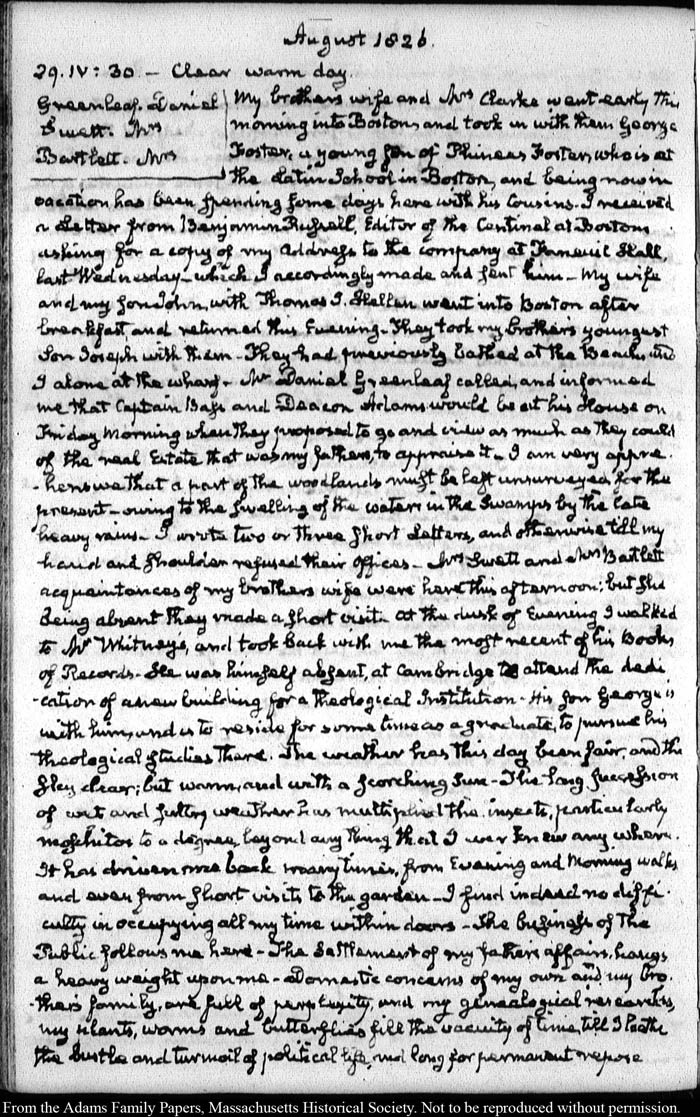 August 1826.
29. IV: 30 - Clear warm day.
Greenleaf. Daniel
Swett. Mrs
Bartlett. Mrs
My brothers wife and Mrs Clarke went early this
morning into Boston, and took in with them George
Foster, a young son of Phineas Foster, who is at
the Latin School in Boston, and being now in
vacation has been spending some days here with his Cousins. I received
a Letter from Benjamin Russell, Editor of the Centinel at Boston
asking for a copy of my Address to the company at Faneuil Hall,
last Wednesday - which I accordingly made and sent him - My wife
and my son John, with Thomas J. Hellen went into Boston after
breakfast and returned this Evening - They took my brother's youngest
Son Joseph with them - They had previously bathed at the Beach, and
I alone at the wharf - Mr Daniel Greenleaf called, and informed
me that Captain Bass and Deacon Adams would be at his House on
Friday Morning when they proposed to go and view as much as they could
of the real Estate that was my father's, to appraise it - I am very appre-
-hensive that a part of the woodlands must be left unsurveyed for the
present - owing to the swelling of the waters in the Swamps by the late
heavy rains - I wrote two or three short Letters, and otherwise till my
hand and shoulder refused their offices - Mrs Swett and Mrs Bartlett
acquaintances of my brothers wife were here this afternoon; but she
being absent they made a short visit. At the dusk of Evening I walked
to Mr Whitney's, and took back with me the most recent of his Books
of Records - He was himself absent, at Cambridge to attend the dedi
-cation of a new building for a Theological Institution - His son George is
with him, and is to reside for some time as a graduate, to pursue his
theological studies there. The weather has this day been fair, and the
sky clear; but warm, and with a scorching Sun - The long succession
of wet and sultry weather has multiplied the insects, particularly
moschitos to a degree, beyond any thing that I ever knew any where.
It has driven me back many times, from Evening and Morning walks
and even from short visits to the garden - I find indeed no diffi-
culty in occupying all my time within doors - The business of the
Public follows me here - The Settlement of my father's affairs, hangs
a heavy weight upon me - Domestic concerns of my own and my bro-
-ther's family, are full of perplexity, and my genealogical researches,
my plants, worms and butterflies fill the vacuity of time, till I loathe
the bustle and turmoil of political life, and long for permanent repose
From the Adams Family Papers, Massachusetts Historical Society. Not to be reproduced without permission.